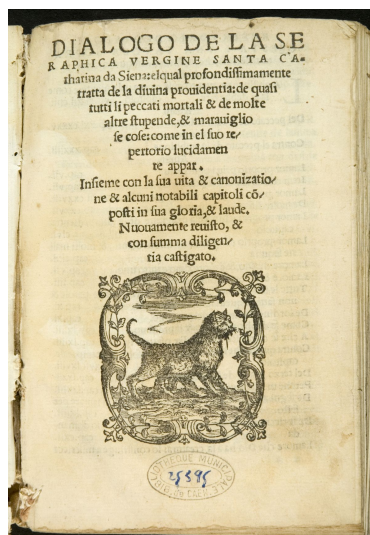 DIALOGO DE LA SE
RAPHICA VERGINE SANTA CA-
tharina da Siena: elqual profondissimamente
tratta de la diuina prouidentia: de quasi
tutti li peccati mortali & de molte
altre stupende, & marauiglio
se cose: come in el suo re/
pertorio lucidamen
te appar.
Insieme con la sua uita & canonizatio/
ne & alcuni notabili capitoli cō/
posti in sua gloria, & laude.
Nuouamente reuisto, &
con summa diligen/
tia castigato.
BIBLIOTHEQUE MUNICIPALE
25395
DE CAEN